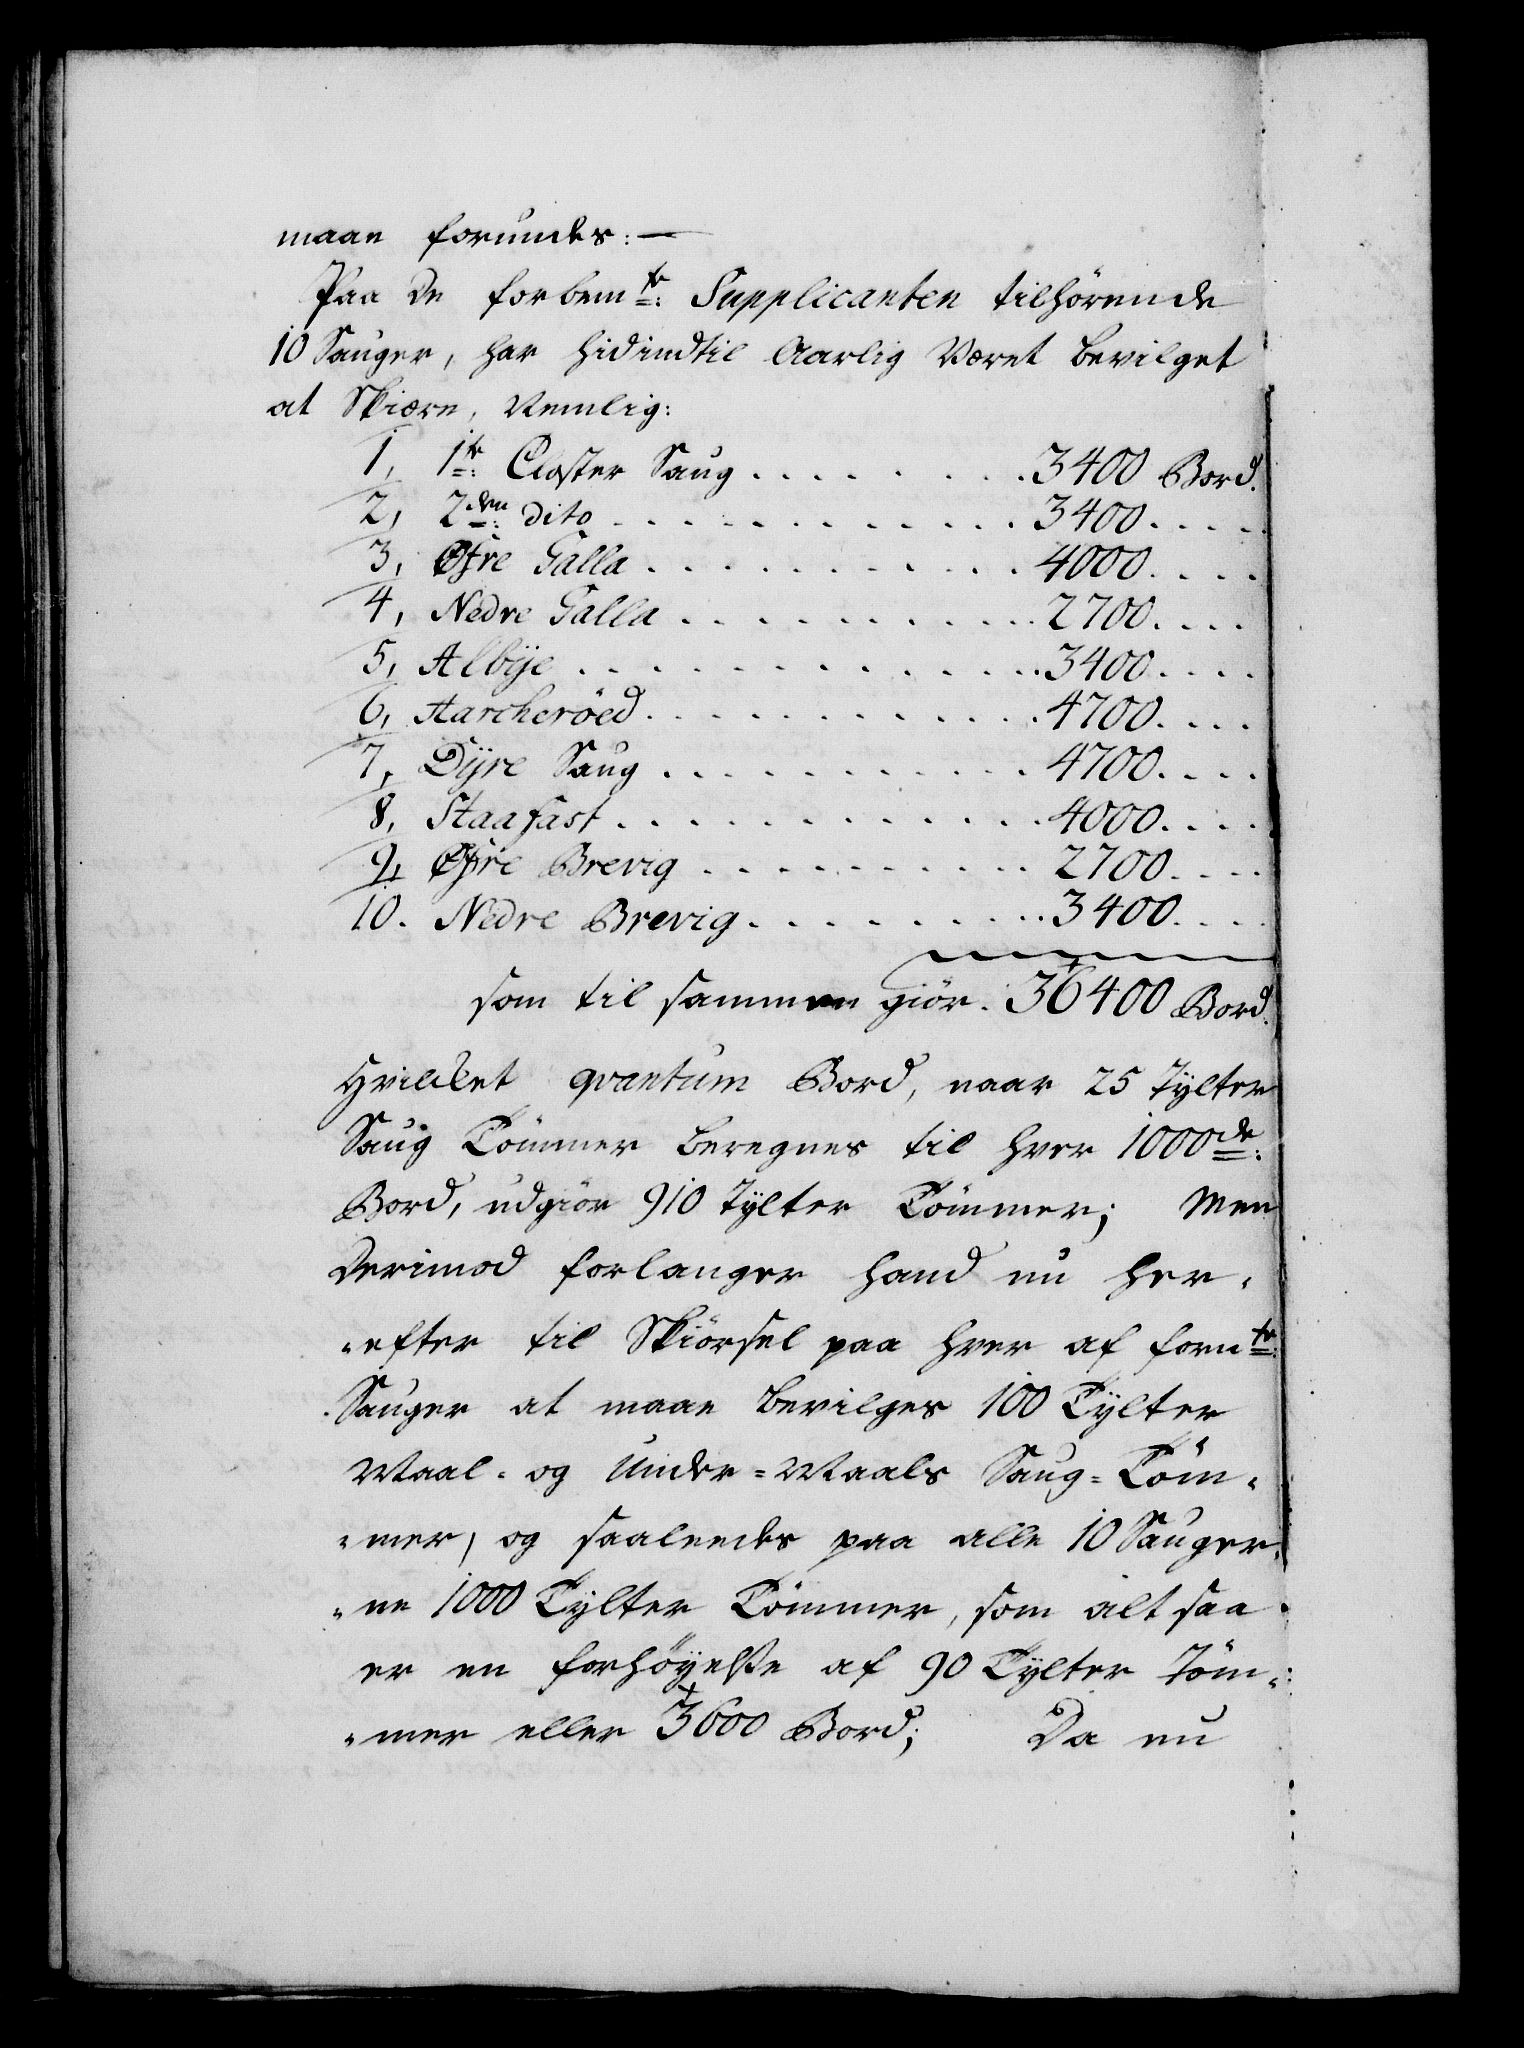 maae forundes: —
Paa de forbemte: Supplicanten tilhörende
10 Sauger, har hidindtil Aarlig Været bevilget
at Skiære, Nemlig:
1, 1te: Closter Saug . . . . . . . . 3400 Bord.
2, 2den: dito . . . . . . . . . . . . 3400 . . . .
3, Øfre Galla . . . . . . . . . . . 4000 . . . .
4, Nedre Galla . . . . . . . . . . . 2700 . . . .
5, Albÿe . . . . . . . . . . . . . 3400 . . . .
6, Aarcheröed . . . . . . . . . . . . 4700 . . . .
7, Dÿre Saug . . . . . . . . . . . 4700 . . . .
8, Staafast . . . . . . . . . . . . 4000 . . . .
9, Øfre Brevig . . . . . . . . . . 2700 . . . .
10. Nedre Brevig . . . . . . . . . 3400 . . . .
som til sammen giör. 36400 Bord.
Hvilcket qvantum Bord, naar 25 Tÿlter
Saug Tömmer beregnes til hver 1000de:
Bord, udgiör 910 Tÿlter Tömmer; Men
Derimod forlanger hand nu her-
-efter til Skiörsel paa hver af fornte:
Sauger at maae bevilges 100 Tÿlter
Maal- og Under-Maals Saug-Töm-
-mer, og saaleedes paa alle 10 Sauger-
-ne 1000 Tÿlter Tömmer, som alt saa
er en forhöÿelße af 90 Tÿlter Töm-
-mer eller 3600 Bord; Da nu